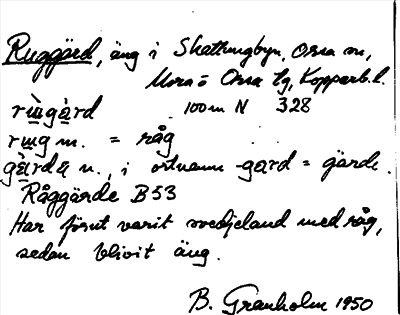 Ruggärd, äng i Skattungbyn, Orsa sn,
Mora o Orsa tg, Kopparb. l.
100 m N 328
rɯ̀gàrd
rɯg m. = råg
gàrdä n., i ortnamn -gard = gärde.
Råggärde B 53
Har förut varit svedjeland med råg,
sedan blivit äng.
B. Granholm 1950